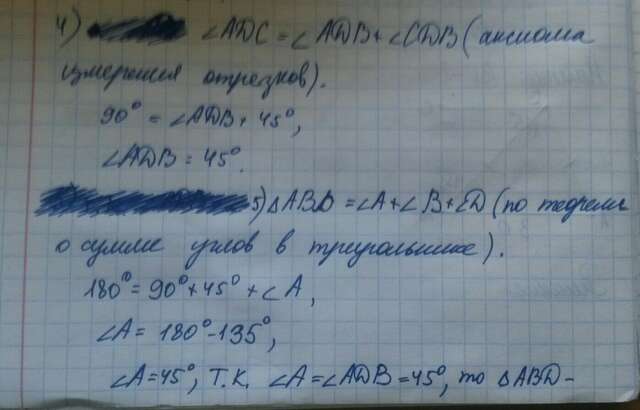 4) ∠ADC = ∠ADB + ∠CDB (аксиома
измерения отрезков).
90° = ∠ADB + 45°,
∠ADB = 45°.
5) △ABD = ∠A + ∠B + ∠D (по теореме
о сумме углов в треугольнике).
180° = 90° + 45° + ∠A,
∠A = 180° - 135°,
∠A = 45°, т.к. ∠A = ∠ADB = 45°, то △ABD -